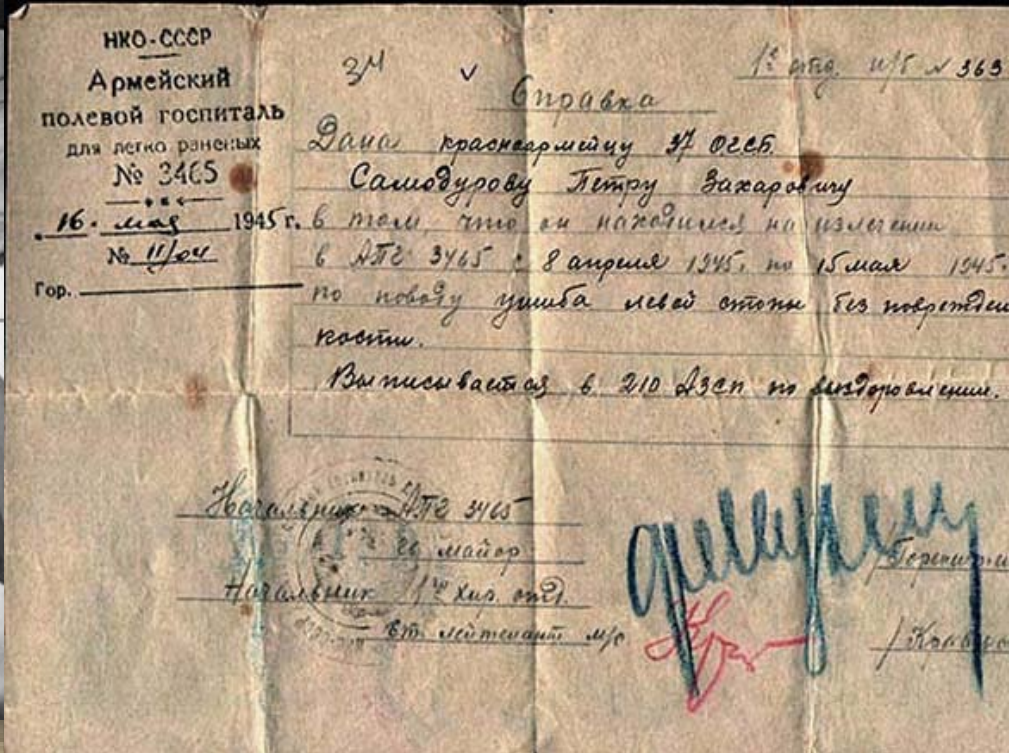 НКО-СССР
Армейский
полевой госпиталь
для легко раненых
№ 3465
16. мая 1945 г.
№ 11/04
Гор.
34
1е отд. и/б № 363
Справка
Дана красноармейцу 37
Самодурову Петру Захаровичу
в том, что он находился на излечении
в АПГ 3465 с 8 апреля 1945. по 15 мая 1945.
по поводу ушиба левой стопы без поврежден
кости.
Выписывается в 210 АЗСП по выздоровлении.
Начальник АПГ 3465
майор
Начальник 1го хир. отд.
лейтенант м/с